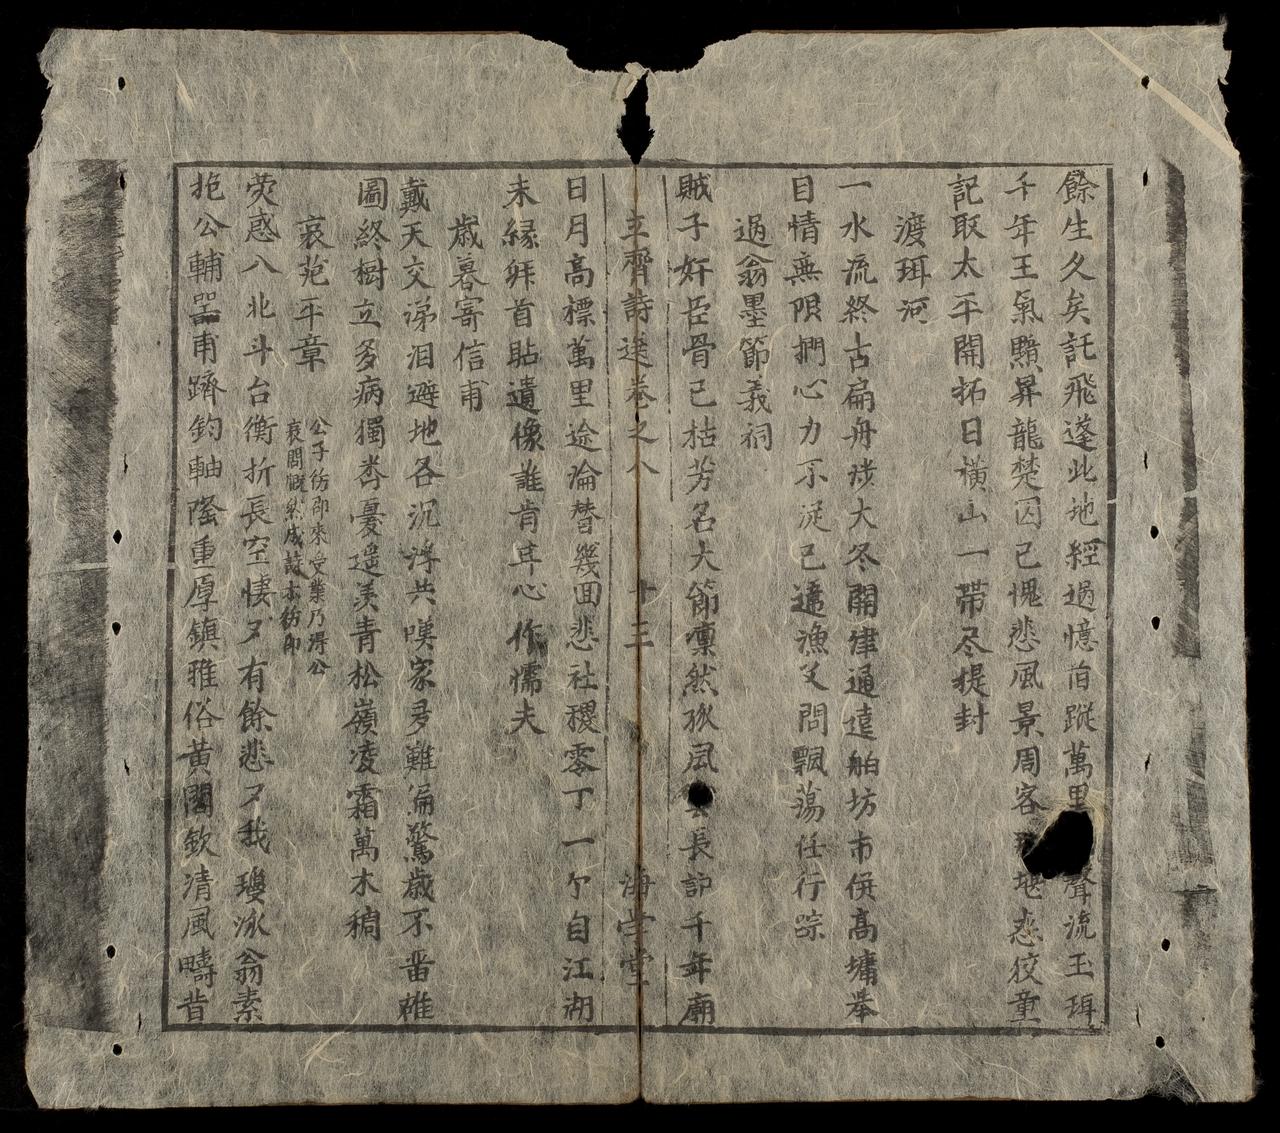 餘生久矣託飛蓬此地經過憶百蹤萬里聲流玉珥
千年王氣黯昇龍楚囚已愧悲風景周客堪悲狡童
記取太平開拓日橫山一帶尽提封
渡珥河
一水流終古扁舟大冬開津通遠舶坊市併高墉举
目情無限捫心力不従已遠漁父問飄蕩任行踪
過翁墨節義祠
賊子奸臣骨已枯芳名大節凛然孤風長記千年廟
立齊詩選卷之八 十三 海学堂
日月高標萬里途淪替幾回悲社稷零丁一个自江湖
未縁拜首貼遺像誰肯甘心作懦夫
歳暮寄信甫
戴天交涕泪避地各沉浮共嘆家多難徧驚歳不畱雄
圖終樹立多病獨怱憂遥羙青松嶺凌霜萬木稠
哀范平章
公子彷卲來受業乃得公
哀問慨然成詩古彷卲
熒惑八北斗台衡折長空悽々有餘悲々我瓊泳翁素
抱公輔噐甫躋鈞軸隆重厚鎮雅俗黄閣欽清風疇昔